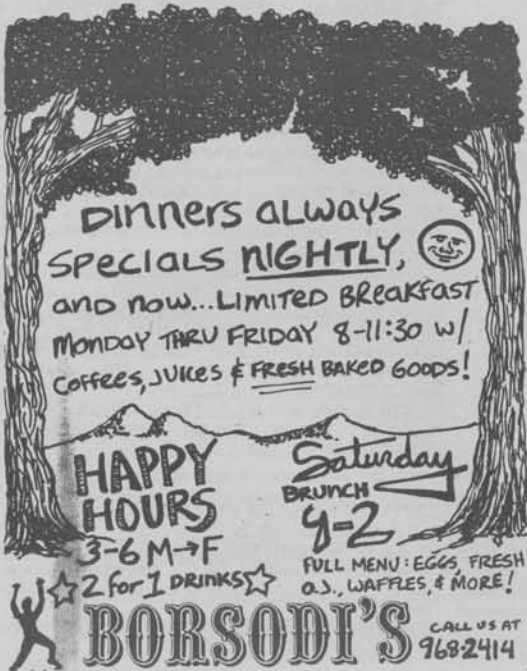 DINNERS ALWAYS
SPECIALS NIGHTLY,
and now...LIMITED BREAKFAST
MONDAY THRU FRIDAY 8-11:30 W/
COFFEES, JUICES & FRESH BAKED GOODS!
HAPPY
HOURS
3-6 M→F
2 for 1 DRINKS
Saturday
BRUNCH
9-2
FULL MENU: EGGS, FRESH
O.J., WAFFLES, & MORE!
BORSODI'S
CALL US AT
968-2414